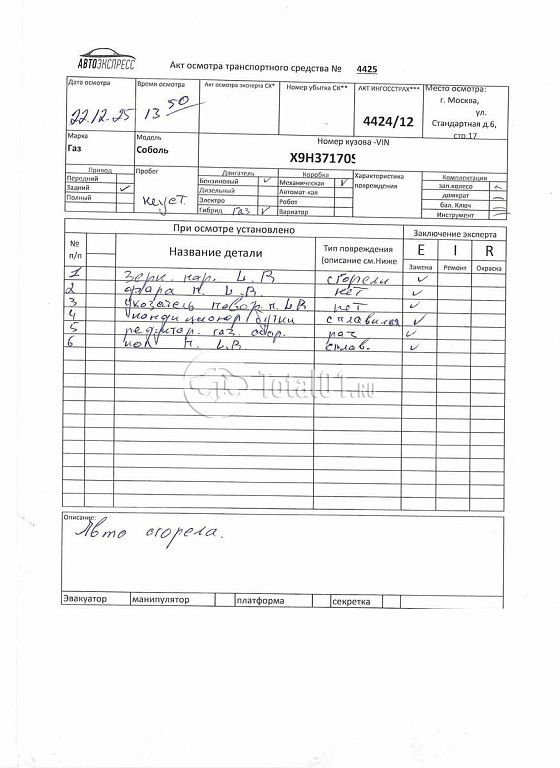 АВТОЭКСПРЕСС
Акт осмотра транспортного средства № 4425
Дата осмотра Время осмотра Акт осмотра эксперта СК* Номер убытка СК** АКТ ИНГОССТРАХ*** Место осмотра:
22.12.25 13 50 4424/12 г. Москва,
ул.
Стандартная д.6,
стр.17
Марка Модель Номер кузова -VIN
Газ Соболь X9H37170S
Привод Пробег Двигатель Коробка Характеристика повреждения Комплектация
Передний Бензиновый ✓ Механическая ✓ зап.колесо
Задний ✓ Дизельный Автомат-кая домкрат
Полный Электро Робот бал. Ключ
Гибрид газ ✓ Вариатор Инструмент
При осмотре установлено Заключение эксперта
№ п/п Название детали Тип повреждения (описание см.Ниже E I R
Замена Ремонт Окраска
1 зерк. нар. L.R сгорели ✓
2 фара п. L.R нет ✓
3 повор. п. L R нет ✓
4 кондиционер ✓
5 редуктор. газ. обор. ✓
6 L.R сплав. ✓
Total01.RU
Описание:
Авто сгорела.
Эвакуатор манипулятор платформа секретка